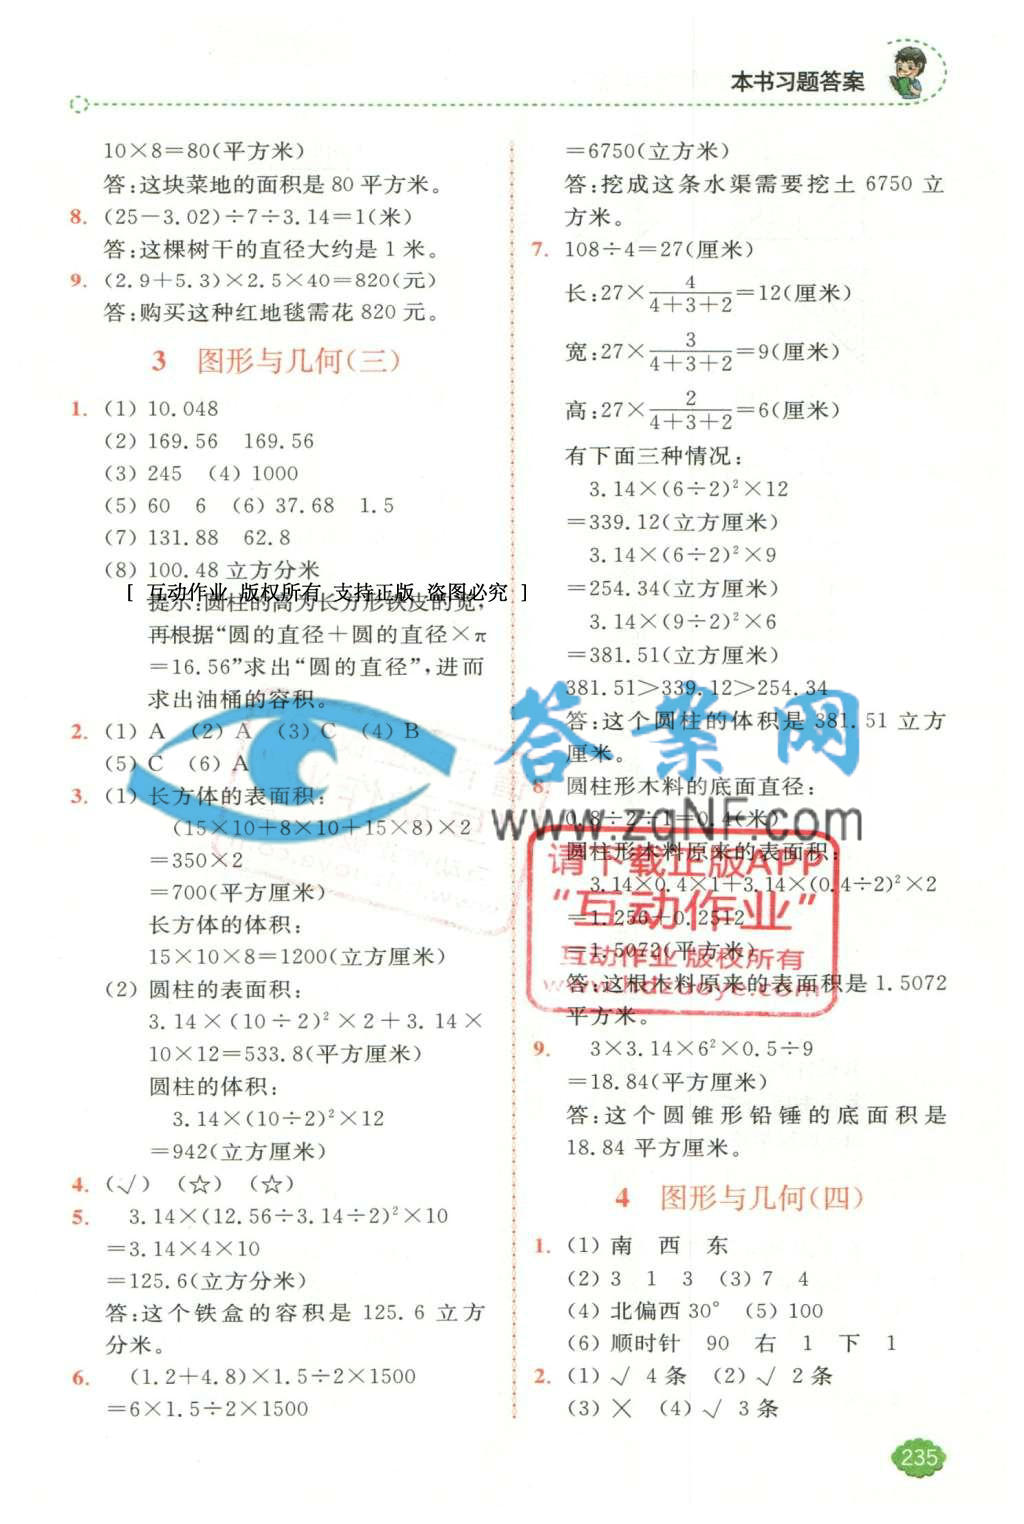 本书习题答案
10×8=80(平方米)
答:这块菜地的面积是 80 平方米。
8. (25-3.02)÷7÷3.14=1(米)
答:这棵树干的直径大约是 1 米。
9. (2.9+5.3)×2.5×40=820(元)
答:购买这种红地毯需花 820 元。
3 图形与几何(三)
1. (1) 10.048
(2) 169.56 169.56
(3) 245 (4) 1000
(5) 60 6 (6) 37.68 1.5
(7) 131.88 62.8
(8) 100.48 立方分米
[ 互动作业 版权所有 支持正版 盗图必究 ]
提示:圆柱的高为长方形铁皮的宽,
再根据“圆的直径+圆的直径×π
=16.56”求出“圆的直径”,进而
求出油桶的容积。
2. (1) A (2) A (3) C (4) B
(5) C (6) A
3. (1) 长方体的表面积:
(15×10+8×10+15×8)×2
=350×2
=700(平方厘米)
长方体的体积:
15×10×8=1200(立方厘米)
(2) 圆柱的表面积:
3.14×(10÷2)²×2+3.14×
10×12=533.8(平方厘米)
圆柱的体积:
3.14×(10÷2)²×12
=942(立方厘米)
4. (√) (☆) (☆)
5. 3.14×(12.56÷3.14÷2)²×10
=3.14×4×10
=125.6(立方分米)
答:这个铁盒的容积是 125.6 立方
分米。
6. (1.2+4.8)×1.5÷2×1500
=6×1.5÷2×1500
=6750(立方米)
答:挖成这条水渠需要挖土 6750 立
方米。
7. 108÷4=27(厘米)
长:27×4/(4+3+2)=12(厘米)
宽:27×3/(4+3+2)=9(厘米)
高:27×2/(4+3+2)=6(厘米)
有下面三种情况:
3.14×(6÷2)²×12
=339.12(立方厘米)
3.14×(6÷2)²×9
=254.34(立方厘米)
3.14×(9÷2)²×6
=381.51(立方厘米)
381.51>339.12>254.34
答:这个圆柱的体积是 381.51 立方
厘米。
答案网
www.zqNF.com
8. 圆柱形木料的底面直径:
0.8÷2÷1=0.4(米)
圆柱形木料原来的表面积:
3.14×0.4×1+3.14×(0.4÷2)²×2
=1.256+0.2512
=1.5072(平方米)
答:这根木料原来的表面积是 1.5072
平方米。
请下载正版APP
“互动作业”
互动作业 版权所有
www.hdzuoye.com
9. 3×3.14×6²×0.5÷9
=18.84(平方厘米)
答:这个圆锥形铅锤的底面积是
18.84 平方厘米。
4 图形与几何(四)
1. (1) 南 西 东
(2) 3 1 3 (3) 7 4
(4) 北偏西 30° (5) 100
(6) 顺时针 90 右 1 下 1
2. (1) √ 4 条 (2) √ 2 条
(3) × (4) √ 3 条
235